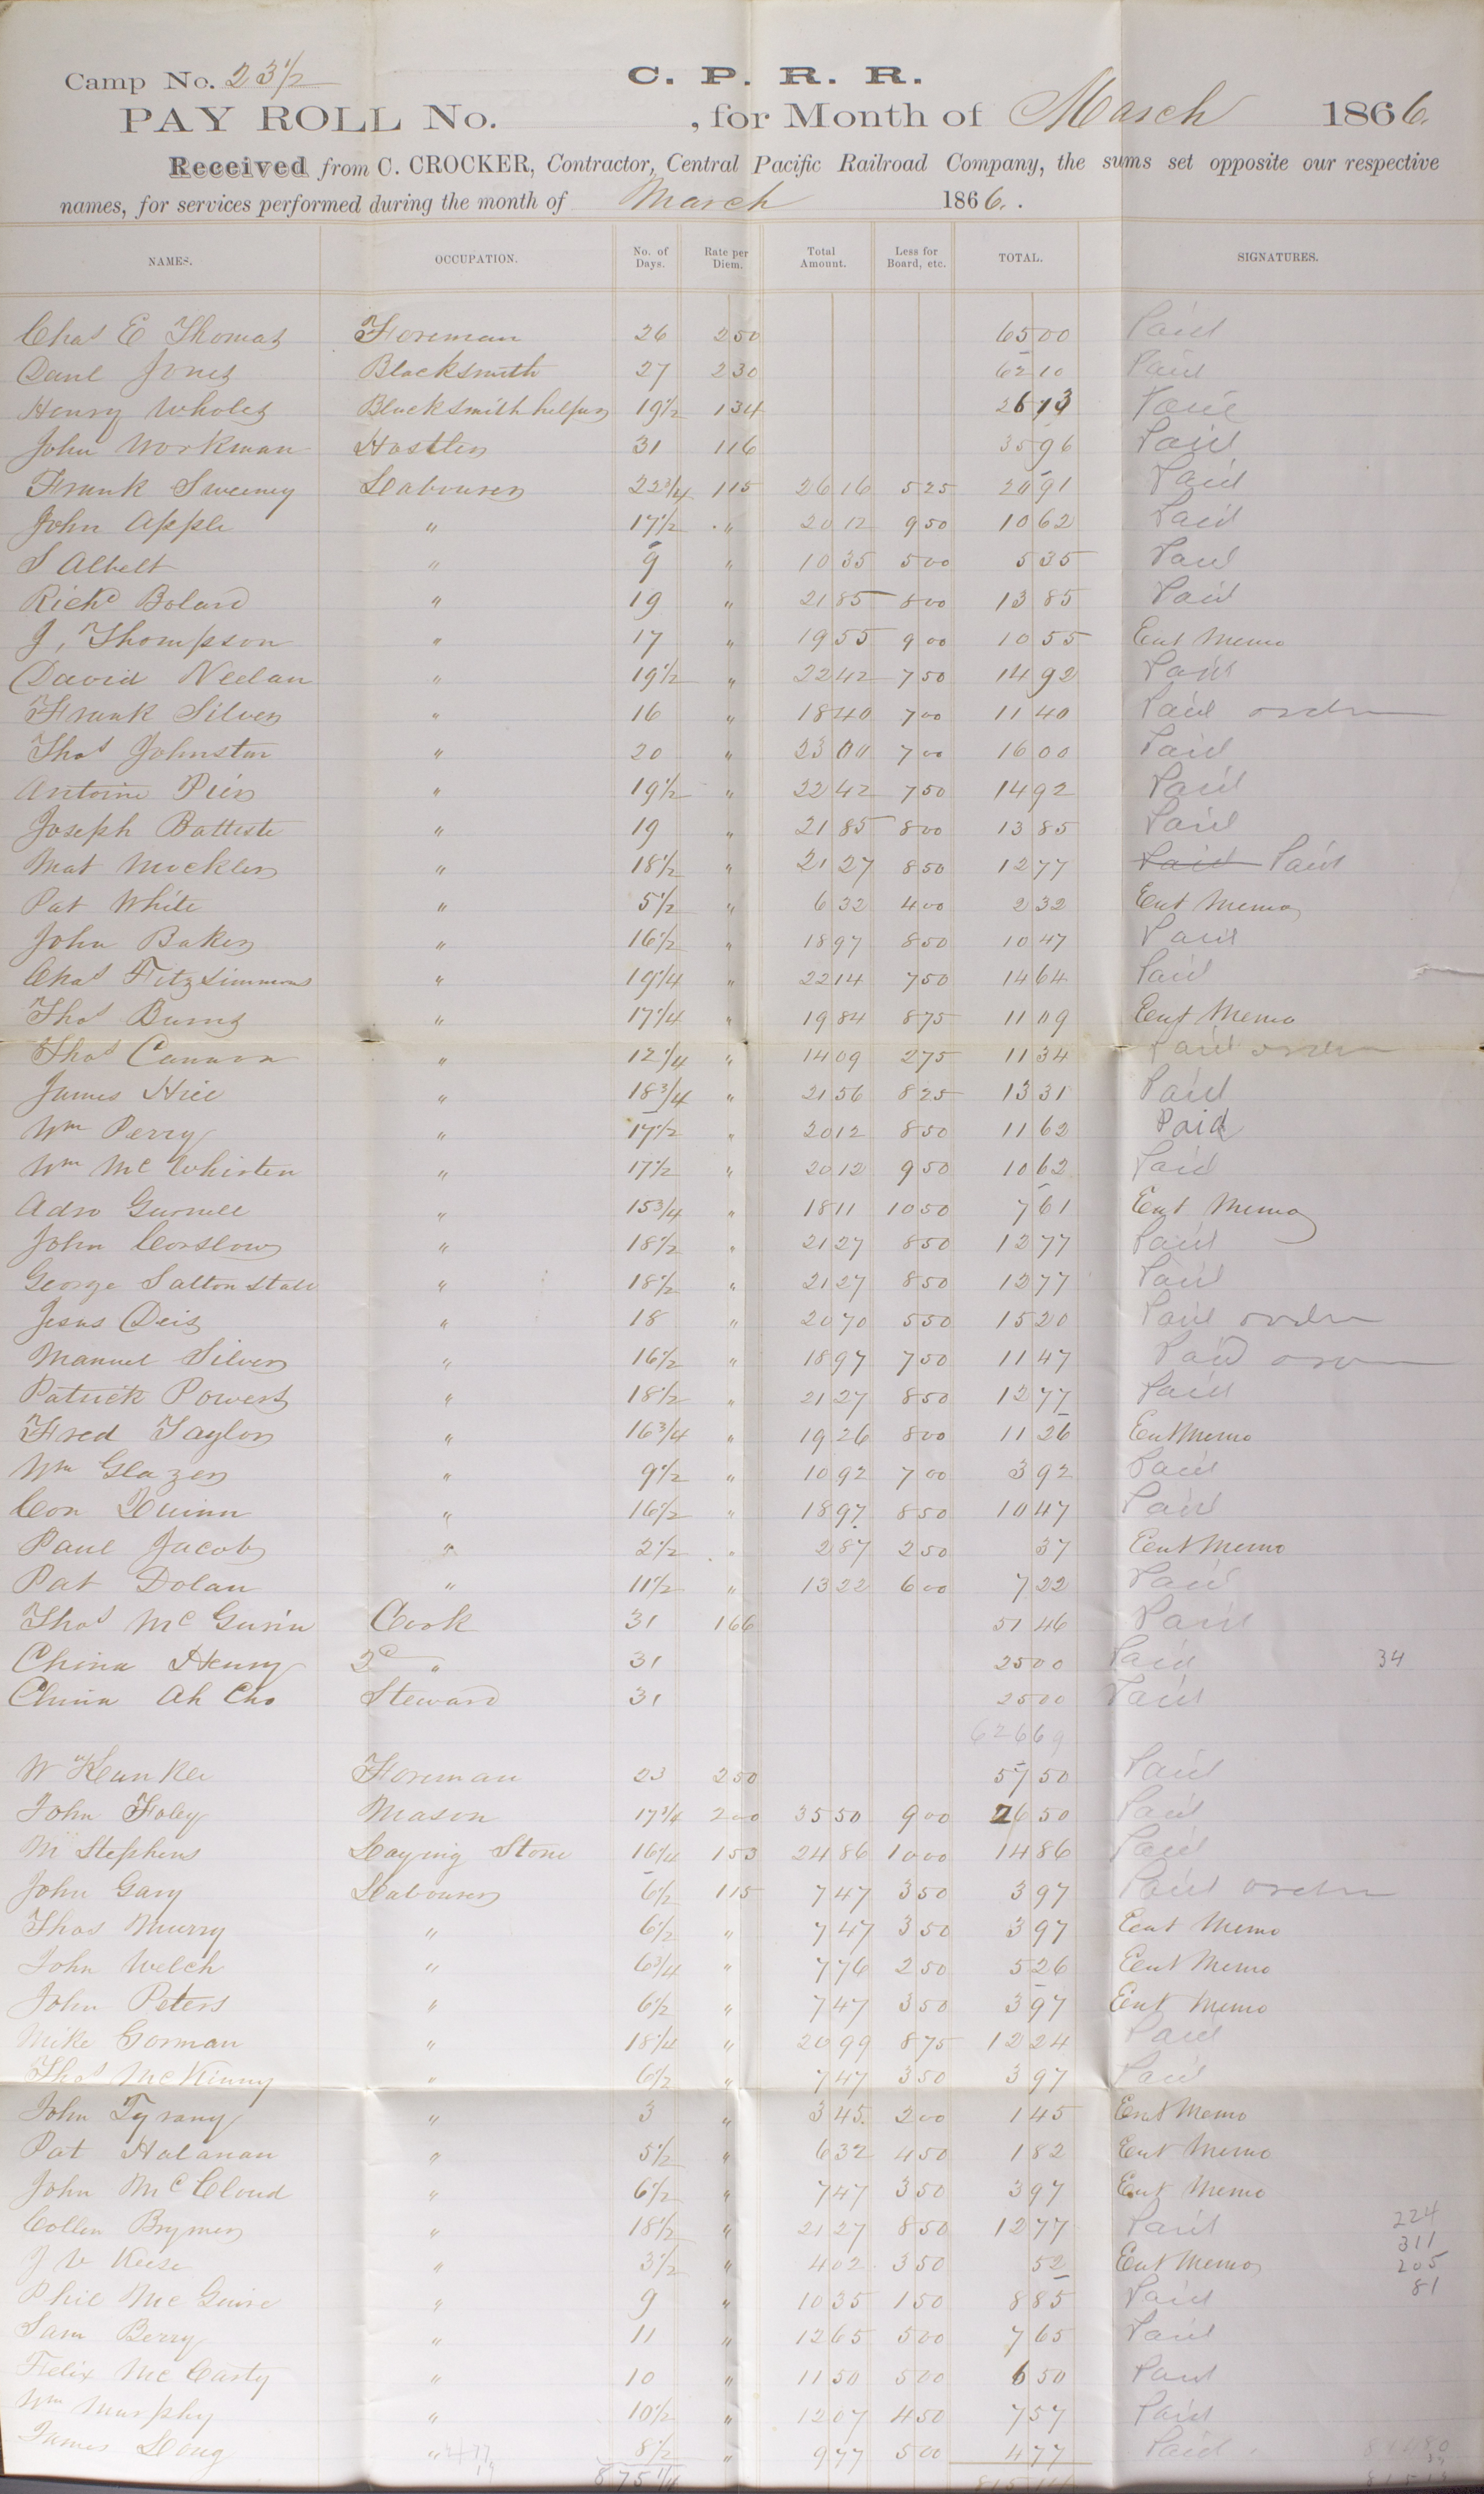 Camp No. 23 1/2
C. P. R. R.
PAY ROLL No. , for Month of March 1866.
Received from C. CROCKER, Contractor, Central Pacific Railroad Company, the sums set opposite our respective
names, for services performed during the month of March 1866.
NAMES. OCCUPATION. No. of Days. Rate per Diem. Total Amount. Less for Board, etc. TOTAL. SIGNATURES.
Chas E Thomas Foreman 26 250 6500 Paid
Danl Jones Blacksmith 27 230 6210 Paid
Henry Wholes Blacksmith helper 19 1/2 134 2613 Paid
John Workman Hostler 31 116 3596 Paid
Frank Sweeney Labourer 22 3/4 115 2616 525 2091 Paid
John Apple " 17 1/2 " 2012 950 1062 Paid
S Albelt " 9 " 1035 500 535 Paid
Richd Boland " 19 " 2185 800 1385 Paid
J. Thompson " 17 " 1955 900 1055 Ent Memo
David Neelan " 19 1/2 " 2242 750 1492 Paid
Frank Silver " 16 " 1840 700 1140 Paid order
Thos Johnston " 20 " 2300 700 1600 Paid
Antoine Pier " 19 1/2 " 2242 750 1492 Paid
Joseph Battiste " 19 " 2185 800 1385 Paid
Mat Mockler " 18 1/2 " 2127 850 1277 Paid Paid
Pat White " 5 1/2 " 632 400 232 Ent Memo
John Baker " 16 1/2 " 1897 850 1047 Paid
Chas Fitzsimmons " 19 1/4 " 2214 750 1464 Paid
Thos Burns " 17 1/4 " 1984 875 1109 Ent Memo
Thos Cannon " 12 1/4 " 1409 275 1134 Paid order
James Hill " 18 3/4 " 2156 825 1331 Paid
Wm Perry " 17 1/2 " 2012 850 1162 Paid
Wm McWhirten " 17 1/2 " 2012 950 1062 Paid
Adro Gurnell " 15 3/4 " 1811 1050 761 Ent Memo
John Corslow " 18 1/2 " 2127 850 1277 Paid
George Saltonstall " 18 1/2 " 2127 850 1277 Paid
Jesus Deis " 18 " 2070 550 1520 Paid order
Manuel Silver " 16 1/2 " 1897 750 1147 Paid order
Patrick Powers " 18 1/2 " 2127 850 1277 Paid
Fred Taylor " 16 3/4 " 1926 800 1126 Ent Memo
Wm Glazer " 9 1/2 " 1092 700 392 Paid
Con Quinn " 16 1/2 " 1897 850 1047 Paid
Paul Jacobs " 2 1/2 " 287 250 37 Ent Memo
Pat Dolan " 11 1/2 " 1322 600 722 Paid
Thos McGuvin Cook 31 166 5146 Paid
China Henry 2d " 31 2500 Paid 34
China Ah Cho Steward 31 2500 Paid
62669
W Kunkle Foreman 23 250 5750 Paid
John Foley Mason 17 3/4 200 3550 900 2650 Paid
M Stephens Laying Stone 16 1/4 153 2486 1000 1486 Paid
John Gary Labourer 6 1/2 115 747 350 397 Paid order
Thos Murry " 6 1/2 " 747 350 397 Ent Memo
John Welch " 6 3/4 " 776 250 526 Ent Memo
John Peters " 6 1/2 " 747 350 397 Ent Memo
Mike Gorman " 18 1/4 " 2099 875 1224 Paid
Thos McKinny " 6 1/2 " 747 350 397 Paid
John Tyrany " 3 " 345 200 145 Ent Memo
Pat Halanan " 5 1/2 " 632 450 182 Ent Memo
John McCloud " 6 1/2 " 747 350 397 Ent Memo
Collen Brymer " 18 1/2 " 2127 850 1277 Paid 224
311
J V Keese " 3 1/2 " 402 350 52 Ent Memo 205
81
Phil McGuire " 9 " 1035 150 885 Paid
Sam Berry " 11 " 1265 500 765 Paid
Felix McCarty " 10 " 1150 500 650 Paid
Wm Murphy " 10 1/2 " 1207 450 757 Paid
James Long " 8 1/2 " 977 500 477 Paid
875 1/4